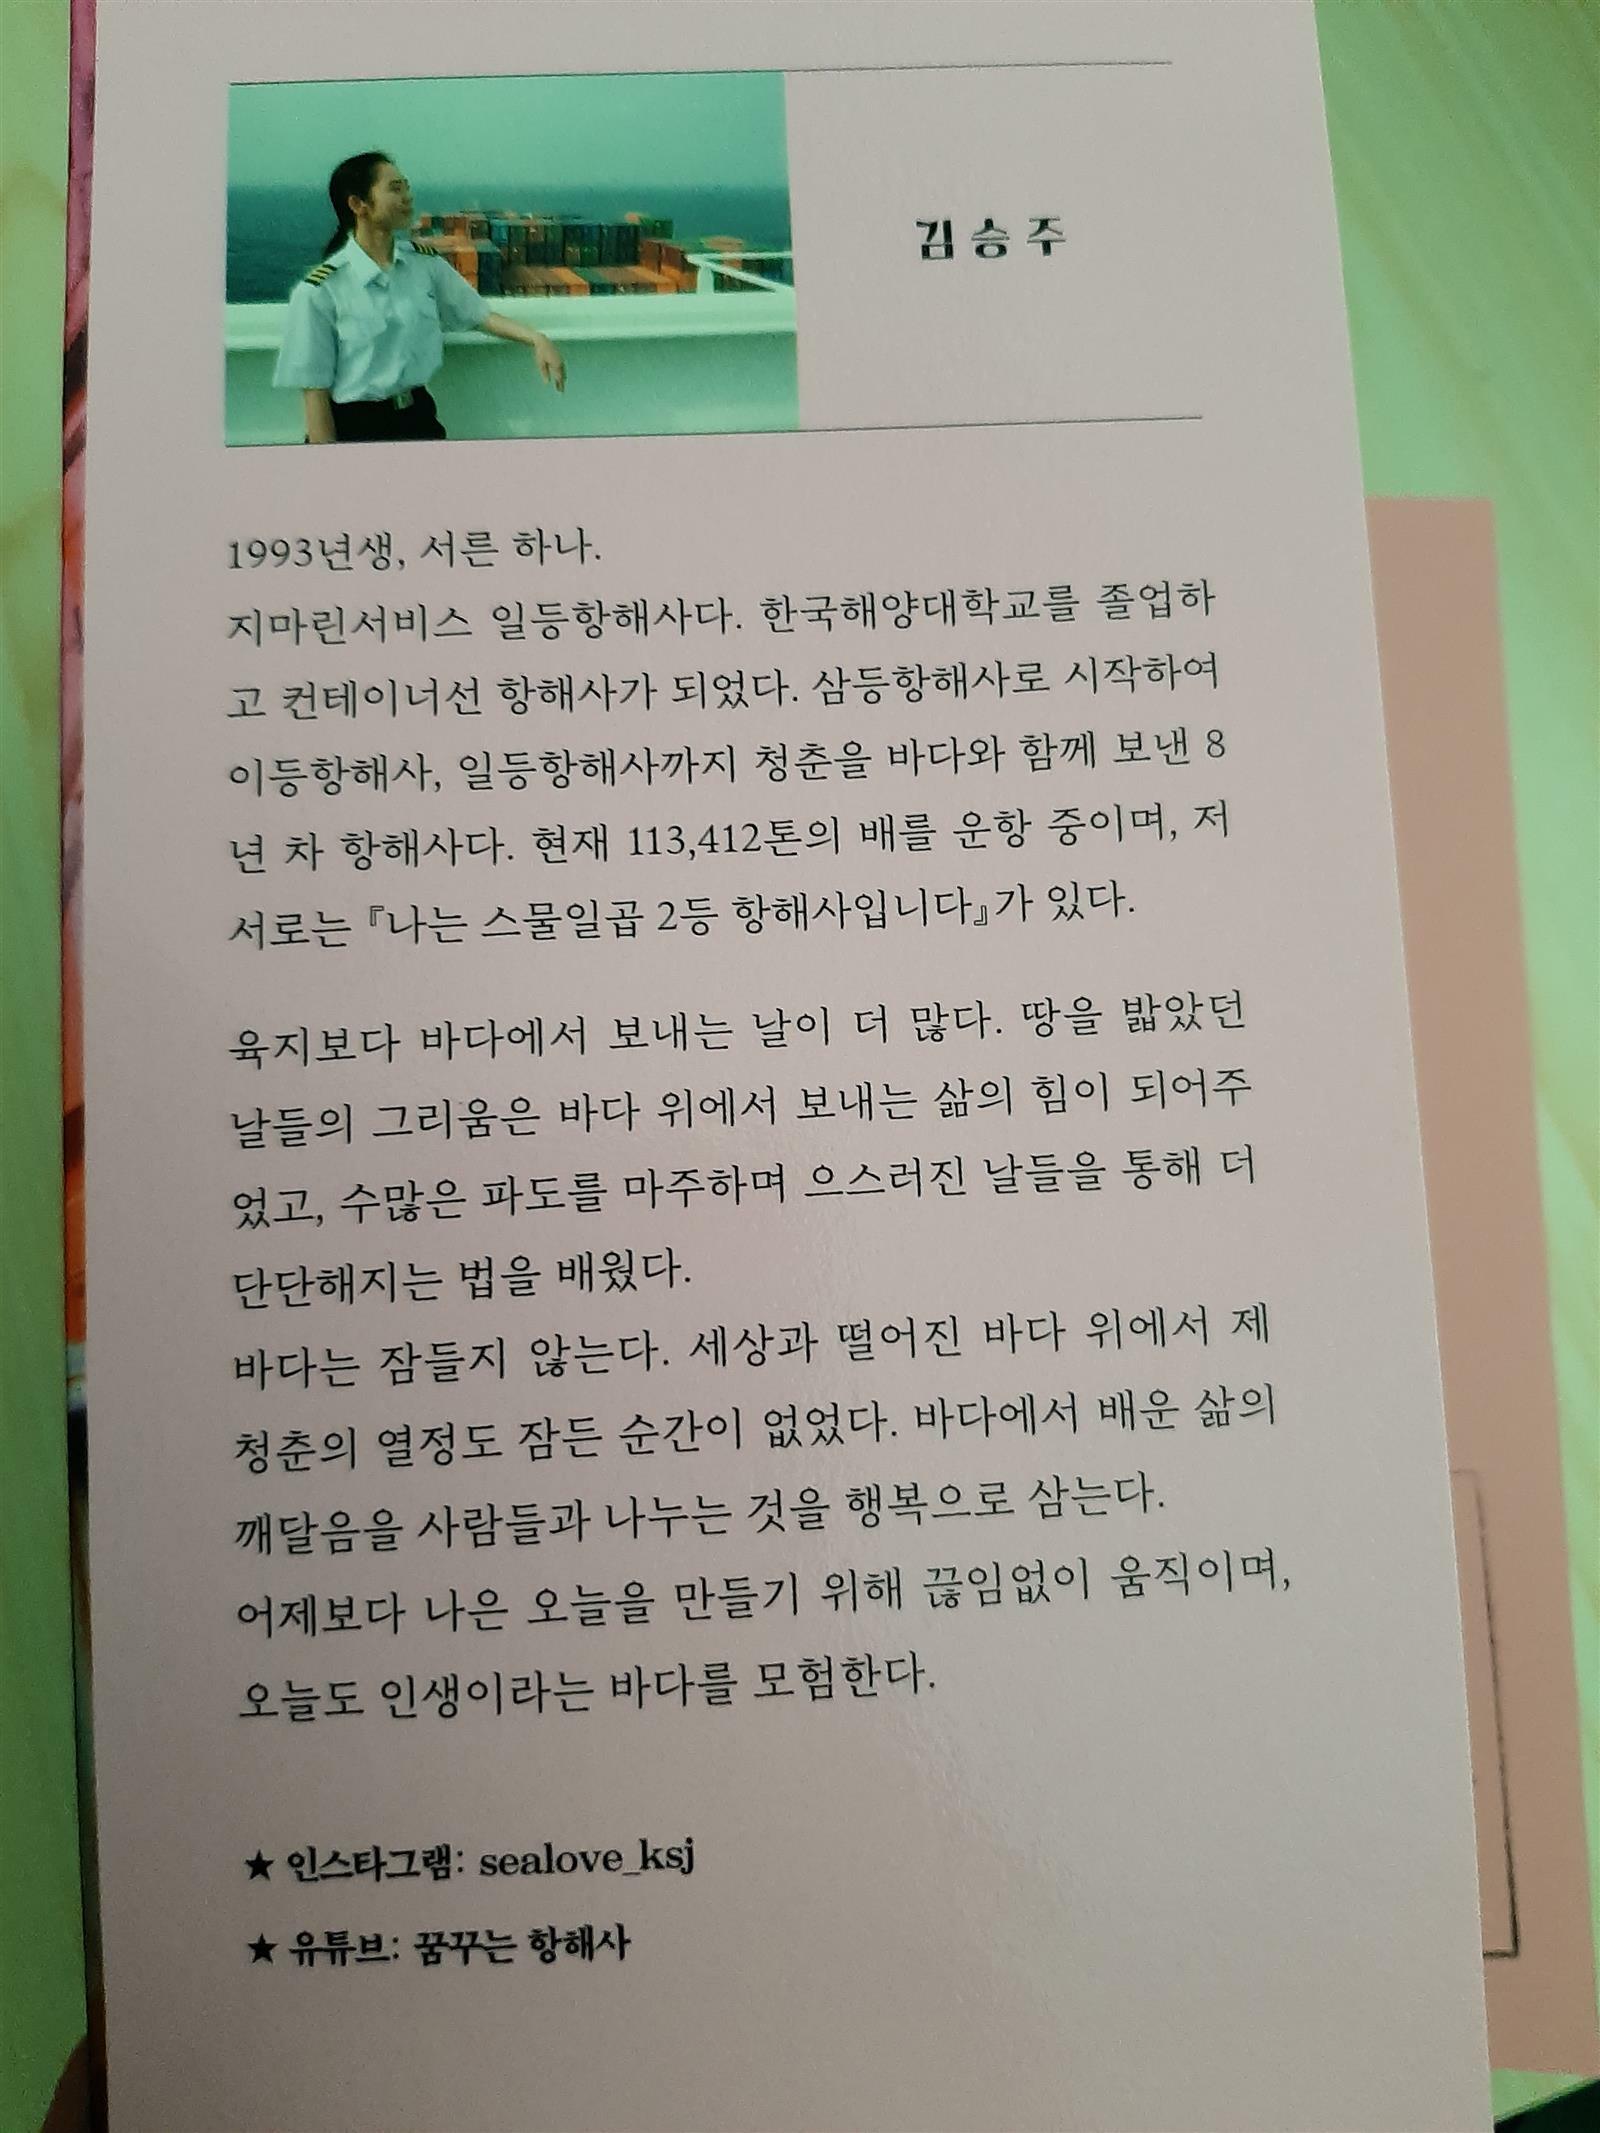 김승주
1993년생, 서른 하나.
지마린서비스 일등항해사다. 한국해양대학교를 졸업하
고 컨테이너선 항해사가 되었다. 삼등항해사로 시작하여
이등항해사, 일등항해사까지 청춘을 바다와 함께 보낸 8
년 차 항해사다. 현재 113,412톤의 배를 운항 중이며, 저
서로는 『나는 스물일곱 2등 항해사입니다』가 있다.
육지보다 바다에서 보내는 날이 더 많다. 땅을 밟았던
날들의 그리움은 바다 위에서 보내는 삶의 힘이 되어주
었고, 수많은 파도를 마주하며 으스러진 날들을 통해 더
단단해지는 법을 배웠다.
바다는 잠들지 않는다. 세상과 떨어진 바다 위에서 제
청춘의 열정도 잠든 순간이 없었다. 바다에서 배운 삶의
깨달음을 사람들과 나누는 것을 행복으로 삼는다.
어제보다 나은 오늘을 만들기 위해 끊임없이 움직이며,
오늘도 인생이라는 바다를 모험한다.
★ 인스타그램: sealove_ksj
★ 유튜브: 꿈꾸는 항해사